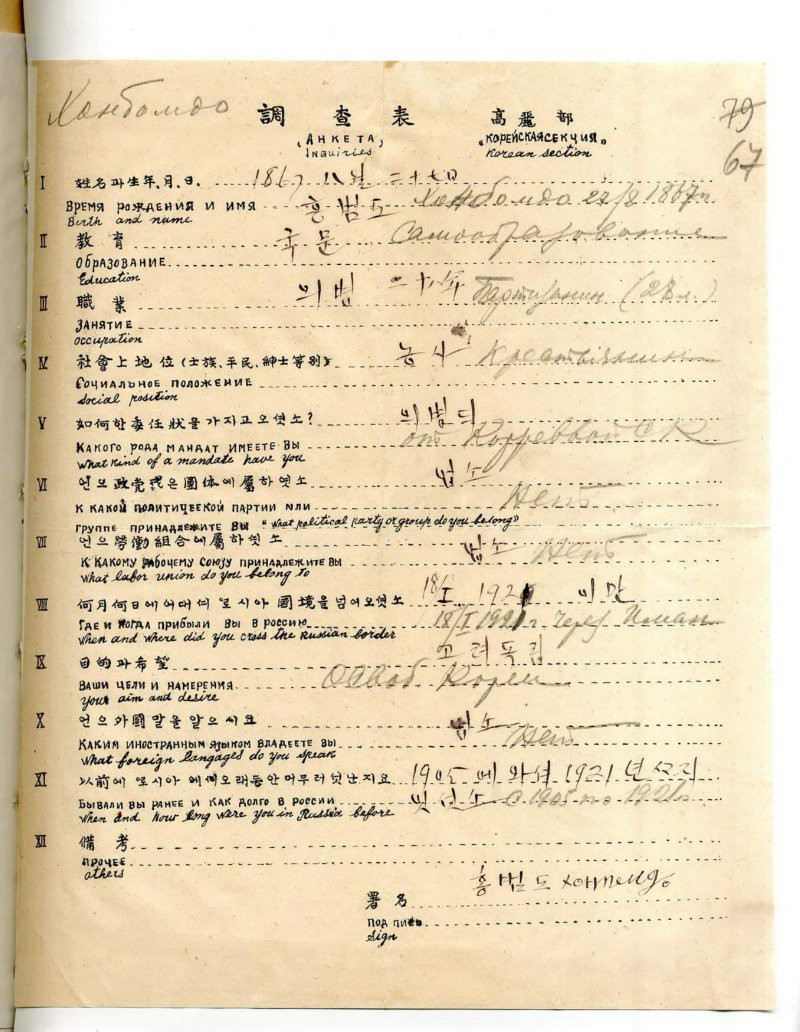 Ханбомдо 調 查 表 高麗部 79
„АНКЕТА„ „КОРЕЙСКАЯ СЕКЦИЯ" 67
Inquiries Korean section
I 姓名과生年、月、日. 1867 八월 二十七日
ВРЕМЯ РОЖДЕНИЯ И ИМЯ 홍범도 Ханбомдо 27/8 1867г.
Birth and name
II 教育 국문 Самообразование
ОБРАЗОВАНИЕ
Education
III 職業 의병 二十년 Партизанин
ЗАНЯТИЕ
occupation
IV 社會上地位(士族、平民、紳士等別) 농사 Крестьянин
СОЦИАЛЬНОЕ ПОЛОЖЕНИЕ
Social position
V 如何한委任狀을가지고오엿소? 의병듸
КАКОГО РОДА МАНДАТ ИМЕЕТЕ ВЫ от
What kind of a mandate have you
VI 언으政党或은團体에屬하엿소 업소
К КАКОЙ ПОЛИТИЧЕСКОЙ ПАРТИИ ИЛИ Нет
ГРУППЕ ПРИНАДЛЕЖИТЕ ВЫ "What political party or group do you belong"
VII 언으勞働組合에屬하엿소 업소 Нет
К КАКОМУ РАБОЧЕМУ СОЮЗУ ПРИНАДЛЕЖИТЕ ВЫ
What labor union do you belong to
VIII 何月何日에어대서로시아國境을넘어오엿소 18/I 1921 이만
ГДЕ И КОГДА ПРИБЫЛИ ВЫ В РОССИЮ 18/I 1921 г. через Иман
When and where did you cross the Russian border
IX 目的과希望 고려독립
ВАШИ ЦЕЛИ И НАМЕРЕНИЯ Освоб. Кореи
your aim and desire
X 언으外國말을알으시요 업소
КАКИМ ИНОСТРАННЫМ ЯЗЫКОМ ВЛАДЕЕТЕ ВЫ Нет
What foreign langages do you speak
XI 以前에로시아에서오래동안머무러잇난지요 1905에와셔 1921년까지
БЫВАЛИ ВЫ РАНЕЕ И КАК ДОЛГО В РОССИИ 잇선소 С 1905 по 1921г
When and how long were you in Russia before
XII 備考
ПРОЧЕЕ
others
署名 홍범도
ПОДПИСЬ
Sign